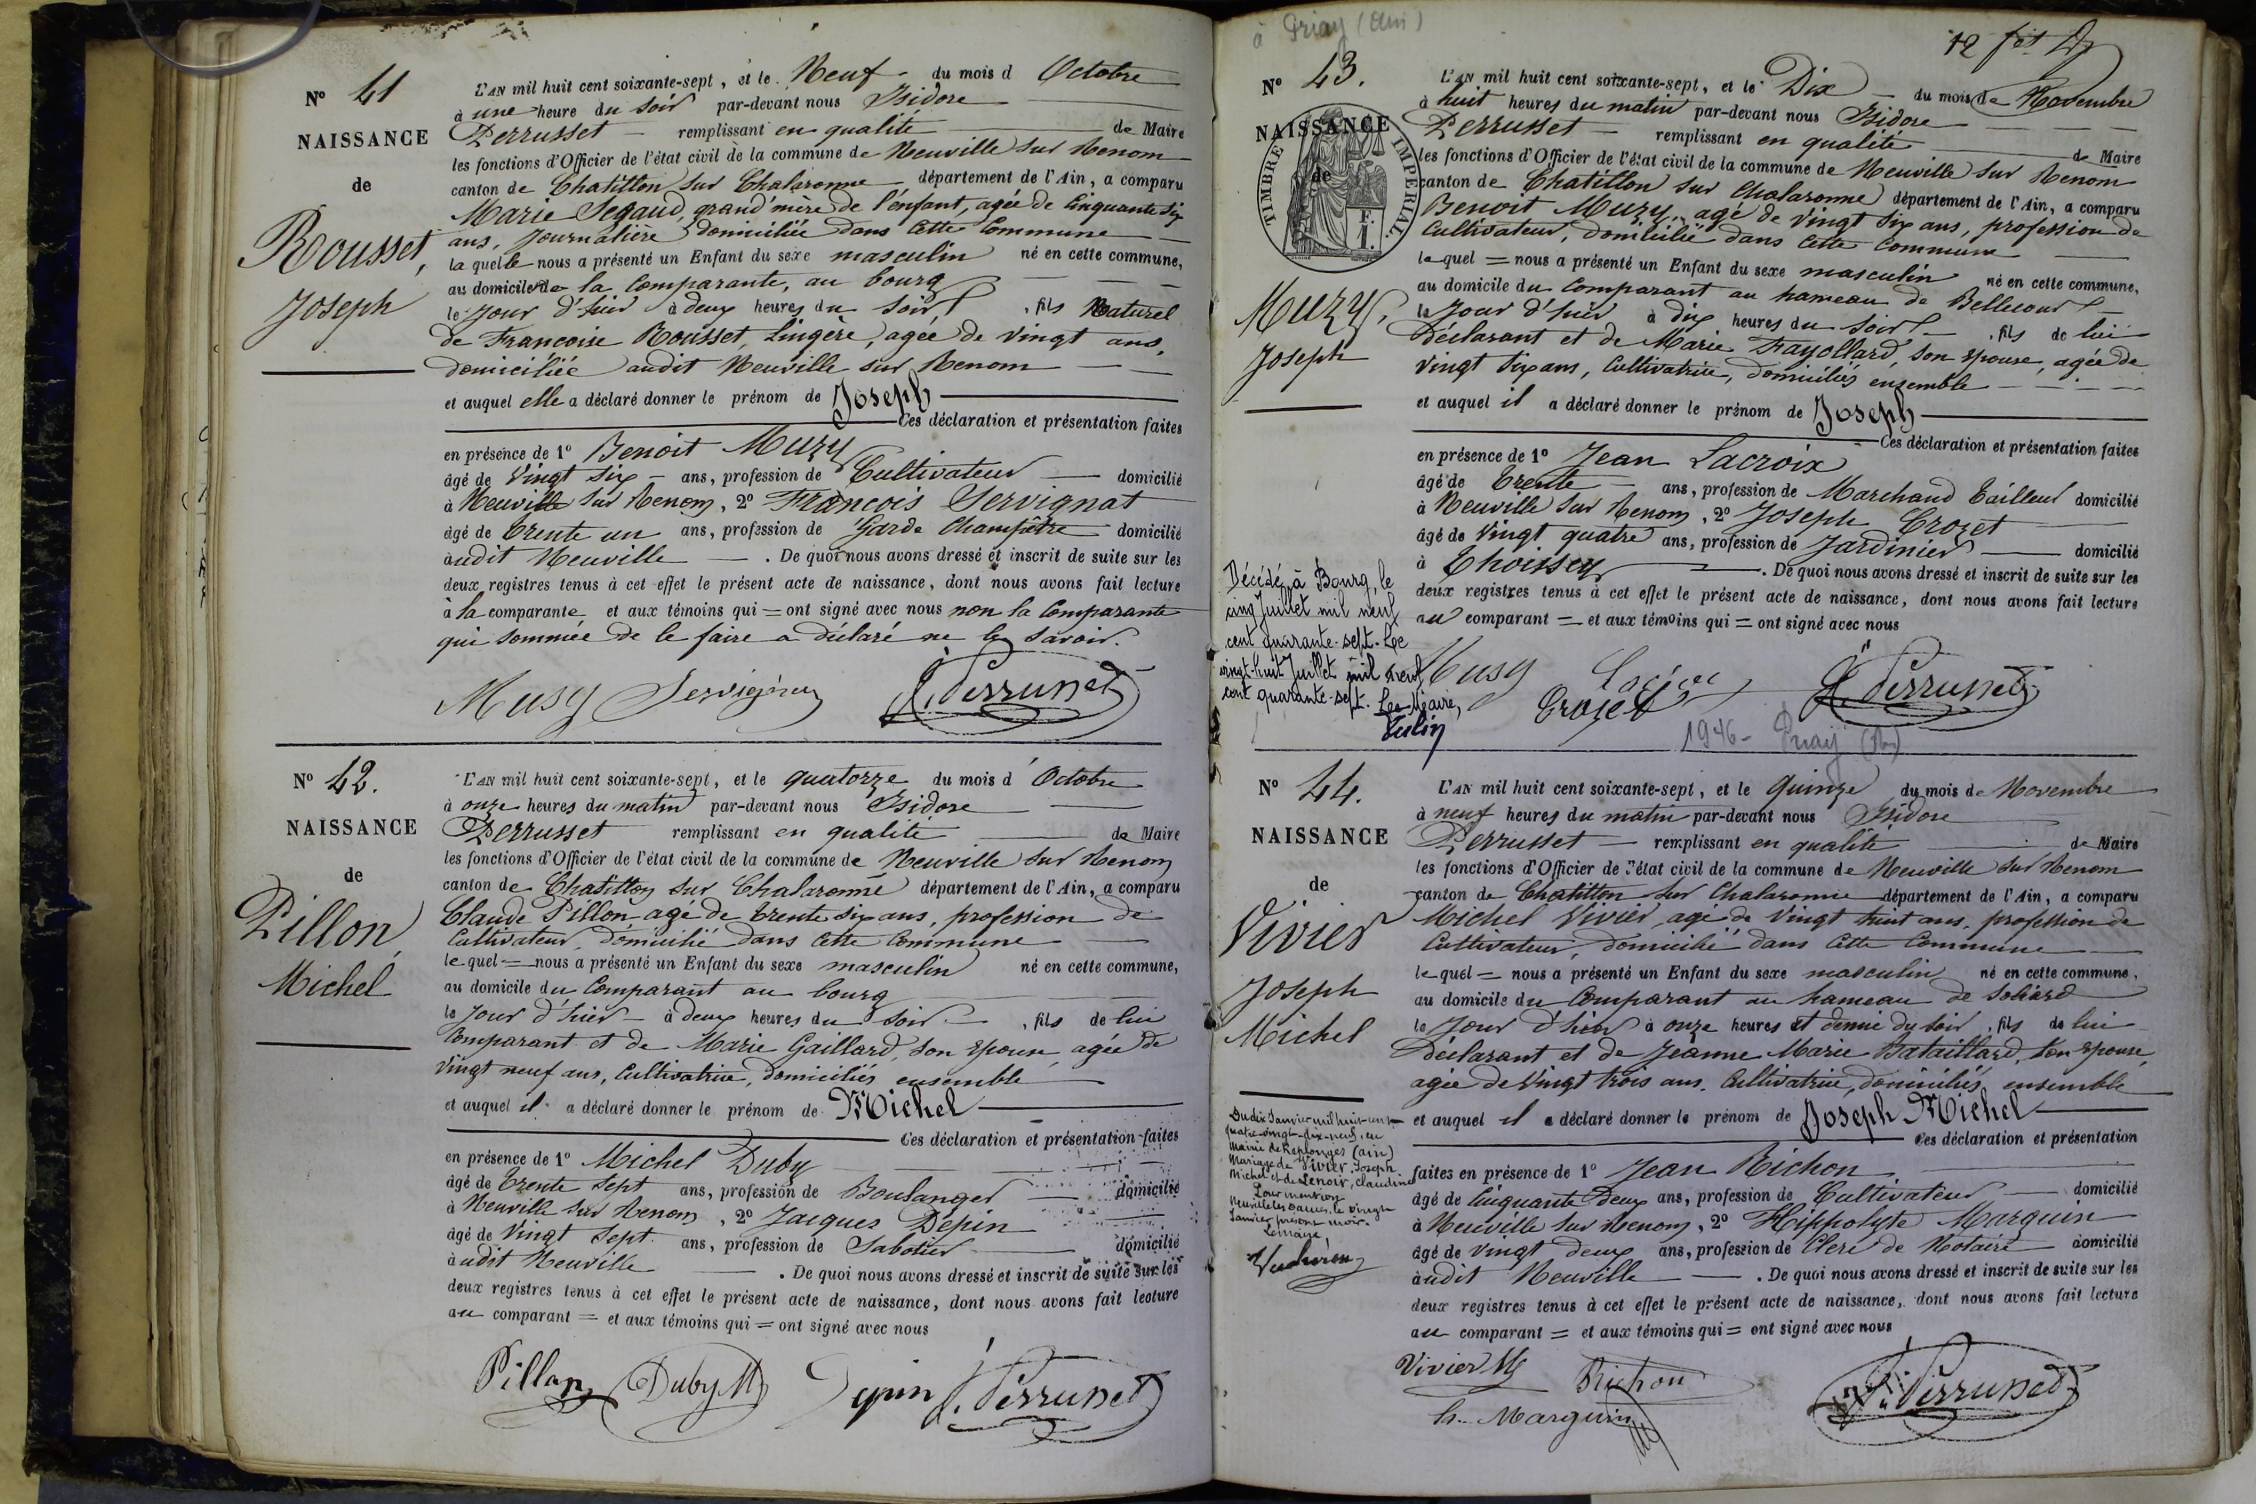 N° 41
NAISSANCE
de
Rousset,
Joseph
L'AN mil huit cent soixante-sept, et le Neuf du mois d Octobre
à une heure du soir par-devant nous Isidore
Perrusset remplissant en qualité de Maire
les fonctions d'Officier de l'état civil de la commune de Neuville sur Renom
canton de Chatillon sur Chalaronne département de l'Ain, a comparu
Marie Segaud, grand'mère de l'enfant, agée de Cinquante six
ans, Journalière domiciliée dans cette Commune
laquelle nous a présenté un Enfant du sexe masculin né en cette commune,
au domicile de la Comparante, au bourg
le Jour d'hier à deux heures du soir, fils Naturel
de Francoise Rousset, Lingère, agée de vingt ans,
domiciliée audit Neuville sur Renom
et auquel elle a déclaré donner le prénom de Joseph
Ces déclaration et présentation faites
en présence de 1° Benoit Muzy
âgé de Vingt six ans, profession de Cultivateur domicilié
à Neuville sur Renom, 2° Francois Servignat
âgé de trente un ans, profession de Garde Champêtre domicilié
audit Neuville . De quoi nous avons dressé et inscrit de suite sur les
deux registres tenus à cet effet le présent acte de naissance, dont nous avons fait lecture
à la comparante et aux témoins qui = ont signé avec nous non la Comparante
qui sommée de le faire a déclaré ne le savoir.
Musy Servignat I. Perrusset
N° 42.
NAISSANCE
de
Pillon,
Michel
L'AN mil huit cent soixante-sept, et le quatorze du mois d Octobre
à onze heures du matin par-devant nous Isidore
Perrusset remplissant en qualité de Maire
les fonctions d'Officier de l'état civil de la commune de Neuville sur Renom
canton de Chatillon sur Chalaronne département de l'Ain, a comparu
Claude Pillon agé de trente six ans, profession de
Cultivateur, domicilié dans cette Commune
lequel = nous a présenté un Enfant du sexe masculin né en cette commune,
au domicile du Comparant au bourg
le Jour d'hier à deux heures du soir, fils de lui
Comparant et de Marie Gaillard, son épouse, agée de
Vingt neuf ans, Cultivatrice, domiciliés ensemble
et auquel il a déclaré donner le prénom de Michel
Ces déclaration et présentation faites
en présence de 1° Michel Duby
âgé de trente sept ans, profession de Boulanger domicilié
à Neuville sur Renom, 2° Jacques Dépin
âgé de Vingt sept ans, profession de Sabotier domicilié
audit Neuville . De quoi nous avons dressé et inscrit de suite sur les
deux registres tenus à cet effet le présent acte de naissance, dont nous avons fait lecture
au comparant = et aux témoins qui = ont signé avec nous
Pillon Duby M Depin I. Perrusset
à Priay (Ain)
12
N° 43.
NAISSANCE
de
TIMBRE IMPERIAL.
Muzy,
Joseph
L'AN mil huit cent soixante-sept, et le Dix du mois de Novembre
à huit heures du matin par-devant nous Isidore
Perrusset remplissant en qualité de Maire
les fonctions d'Officier de l'état civil de la commune de Neuville sur Renom
canton de Chatillon sur Chalaronne département de l'Ain, a comparu
Benoit Muzy, agé de vingt six ans, profession de
Cultivateur, domicilié dans cette Commune
lequel = nous a présenté un Enfant du sexe masculin né en cette commune,
au domicile du Comparant au hameau de Bellecour
le Jour d'hier à dix heures du soir, fils de lui
Déclarant et de Marie Fayollard, son épouse, agée de
vingt six ans, Cultivatrice, domiciliés ensemble
et auquel il a déclaré donner le prénom de Joseph
Ces déclaration et présentation faites
en présence de 1° Jean Lacroix
âgé de trente ans, profession de Marchand Tailleur domicilié
à Neuville sur Renom, 2° Joseph Crozet
âgé de vingt quatre ans, profession de Jardinier domicilié
à Thoissey . De quoi nous avons dressé et inscrit de suite sur les
deux registres tenus à cet effet le présent acte de naissance, dont nous avons fait lecture
au comparant = et aux témoins qui = ont signé avec nous
Musy Lacroix Crozet I. Perrusset
Décédé à Bourg, le
cinq Juillet mil neuf
cent quarante-sept. Le
vingt-huit Juillet mil neuf
cent quarante-sept. Le Maire,
1946 - Priay (Ain)
N° 44.
NAISSANCE
de
Vivier
Joseph
Michel
L'AN mil huit cent soixante-sept, et le Quinze du mois de Novembre
à neuf heures du matin par-devant nous Isidore
Perrusset remplissant en qualité de Maire
les fonctions d'Officier de l'état civil de la commune de Neuville sur Renom
canton de Chatillon sur Chalaronne département de l'Ain, a comparu
Michel Vivier, agé de Vingt huit ans, profession de
Cultivateur, domicilié dans cette Commune
lequel = nous a présenté un Enfant du sexe masculin né en cette commune,
au domicile du Comparant au hameau de
le Jour d'hier à onze heures et demie du soir, fils de lui
Déclarant et de Jeanne Marie Bataillard, son épouse,
agée de Vingt trois ans, Cultivatrice, domiciliés ensemble
et auquel il a déclaré donner le prénom de Joseph Michel
Ces déclaration et présentation
faites en présence de 1° Jean Richon
âgé de Cinquante Deux ans, profession de Cultivateur domicilié
à Neuville sur Renom, 2° Hippolyte Marguin
âgé de vingt deux ans, profession de Clerc de Notaire domicilié
audit Neuville . De quoi nous avons dressé et inscrit de suite sur les
deux registres tenus à cet effet le présent acte de naissance, dont nous avons fait lecture
au comparant = et aux témoins qui = ont signé avec nous
Vivier M Richon I. Perrusset
h. Marguin
Du dix Janvier mil huit cent
quatre-vingt-dix-neuf, en
mairie de Replonges (Ain)
Mariage de Vivier, Joseph
Michel et de Lenoir, Claudine
Pour mention
Neuville les Dames, le vingt
Janvier présent mois.
Le maire,